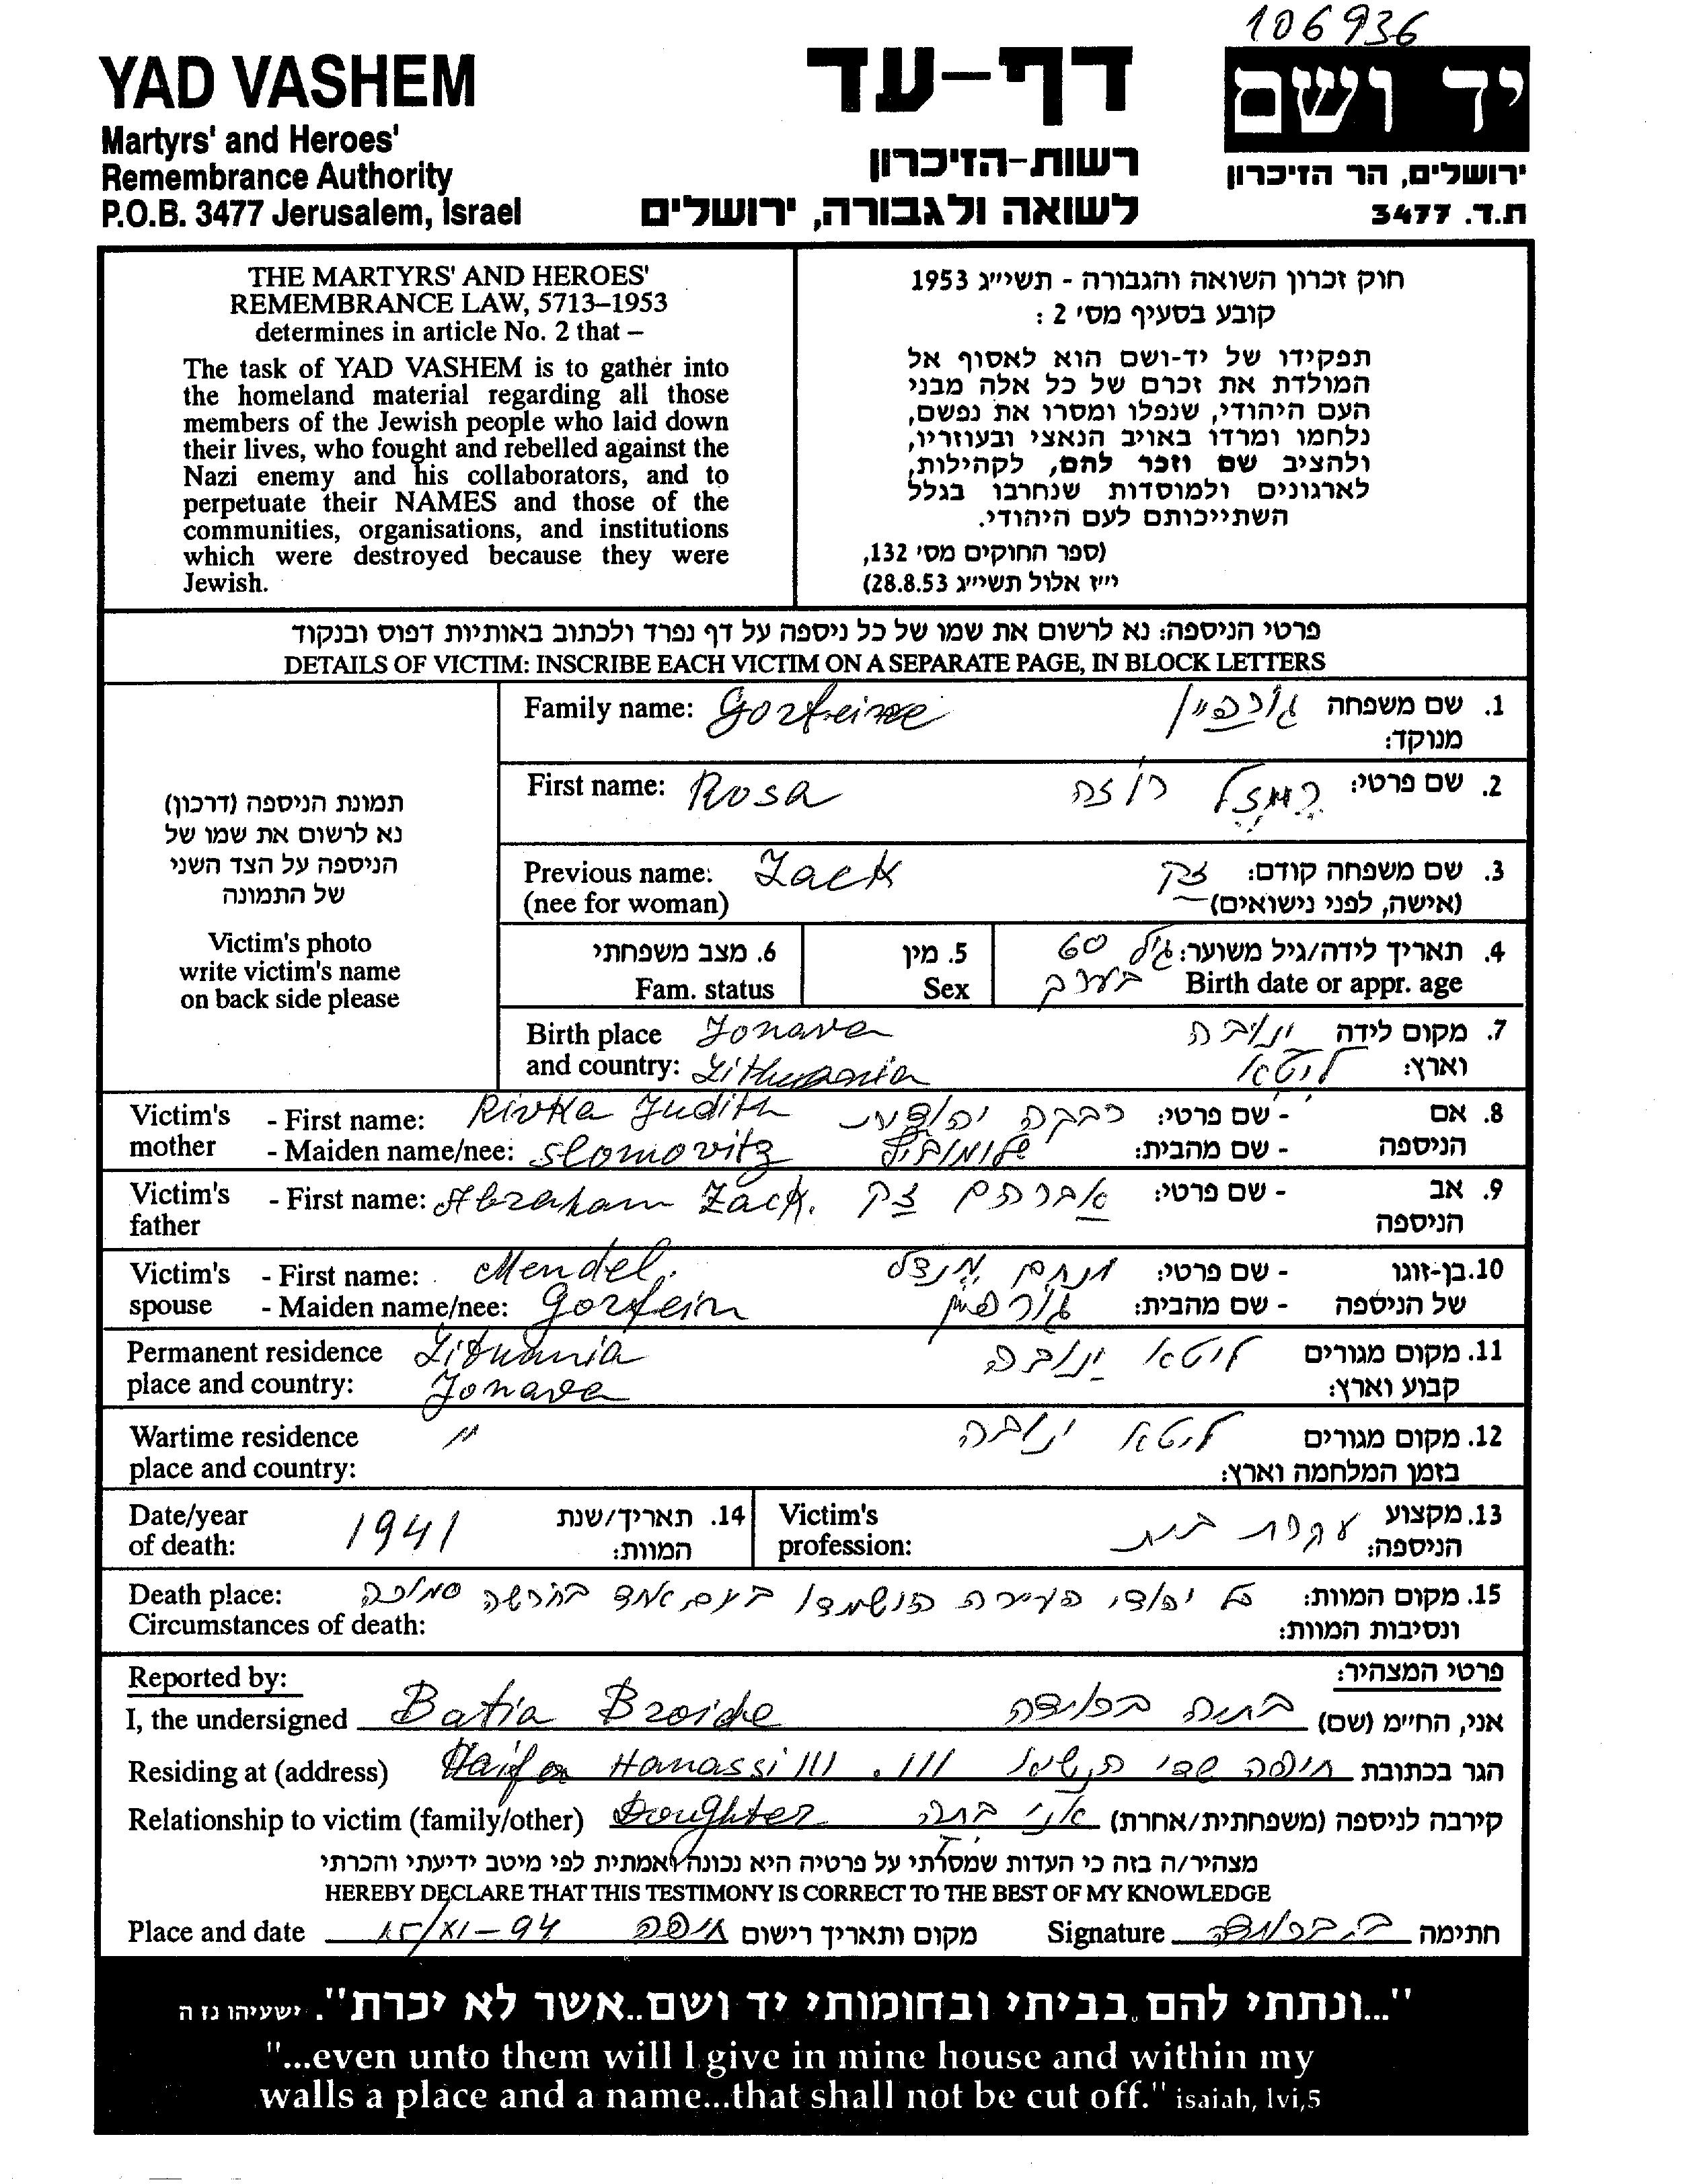 106936
YAD VASHEM
Martyrs' and Heroes'
Remembrance Authority
P.O.B. 3477 Jerusalem, Israel
דף-עד
רשות-הזיכרון
לשואה ולגבורה, ירושלים
יד ושם
ירושלים, הר הזיכרון
ת.ד. 3477
THE MARTYRS' AND HEROES'
REMEMBRANCE LAW, 5713–1953
determines in article No. 2 that –
The task of YAD VASHEM is to gather into
the homeland material regarding all those
members of the Jewish people who laid down
their lives, who fought and rebelled against the
Nazi enemy and his collaborators, and to
perpetuate their NAMES and those of the
communities, organisations, and institutions
which were destroyed because they were
Jewish.
חוק זכרון השואה והגבורה - תשי״ג 1953
קובע בסעיף מס׳ 2 :
תפקידו של יד-ושם הוא לאסוף אל
המולדת את זכרם של כל אלה מבני
העם היהודי, שנפלו ומסרו את נפשם,
נלחמו ומרדו באויב הנאצי ובעוזריו,
ולהציב שם וזכר להם, לקהילות,
לארגונים ולמוסדות שנחרבו בגלל
השתייכותם לעם היהודי.
(ספר החוקים מס׳ 132,
י״ז אלול תשי״ג 28.8.53)
פרטי הניספה: נא לרשום את שמו של כל ניספה על דף נפרד ולכתוב באותיות דפוס ובנקוד
DETAILS OF VICTIM: INSCRIBE EACH VICTIM ON A SEPARATE PAGE, IN BLOCK LETTERS
תמונת הניספה (דרכון)
נא לרשום את שמו של
הניספה על הצד השני
של התמונה
Victim's photo
write victim's name
on back side please
Family name: Gorfeine גורפיין 1. שם משפחה
מנוקד:
First name: Rosa רוזה 2. שם פרטי:
Previous name: Zack זק 3. שם משפחה קודם:
(nee for woman) (אישה, לפני נישואים)
4. תאריך לידה/גיל משוער: גיל 60
Birth date or appr. age בערך
5. מין
Sex
6. מצב משפחתי
Fam. status
Birth place Jonava ינובה 7. מקום לידה
and country: Lithuania ליטא וארץ:
Victim's - First name: Rivka Judith רבקה יהודית - שם פרטי: 8. אם
mother - Maiden name/nee: Slomovitz שלומוביץ - שם מהבית: הניספה
Victim's - First name: Abraham Zack. אברהם זק - שם פרטי: 9. אב
father הניספה
Victim's - First name: Mendel. מנחם מנדל - שם פרטי: 10. בן-זוגו
spouse - Maiden name/nee: Gorfein גורפיין - שם מהבית: של הניספה
Permanent residence Lituania ליטא ינובה 11. מקום מגורים
place and country: Jonava קבוע וארץ:
Wartime residence " ליטא ינובה 12. מקום מגורים
place and country: בזמן המלחמה וארץ:
Date/year 1941 14. תאריך/שנת
of death: המוות:
Victim's עקרת בית 13. מקצוע
profession: הניספה:
Death place: כל יהודי העיירה הושמדו ביום אחד בחורשה סמוכה 15. מקום המוות:
Circumstances of death: ונסיבות המוות:
Reported by: פרטי המצהיר:
I, the undersigned Batia Broide בתיה ברוידה אני, החי״מ (שם)
Residing at (address) Haifa Hanassi 111 . 111 חיפה שד׳ הנשיא הגר בכתובת
Relationship to victim (family/other) Doughter אני בתה קירבה לניספה (משפחתית/אחרת)
מצהיר/ה בזה כי העדות שמסרתי על פרטיה היא נכונה ואמתית לפי מיטב ידיעתי והכרתי
HEREBY DECLARE THAT THIS TESTIMONY IS CORRECT TO THE BEST OF MY KNOWLEDGE
Place and date 15/XI-94 חיפה מקום ותאריך רישום Signature ב. ברוידה חתימה
"...ונתתי להם בביתי ובחומותי יד ושם..אשר לא יכרת". ישעיהו נז ה
"...even unto them will I give in mine house and within my
walls a place and a name...that shall not be cut off." isaiah, lvi,5